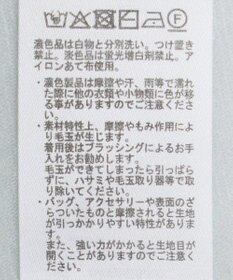 濃色品は白物と分別洗い。つけ置き
禁止。淡色品は蛍光増白剤禁止。ア
イロンあて布使用。
・濃色製品は摩擦や汗、雨等で濡れ
た際に他の衣類や小物類に色が移
る事がありますのでご注意くださ
い。
・素材特性上、摩擦やもみ作用によ
り毛玉が生じます。
着用後はブラッシングによるお手
入れをお勧めします。
毛玉ができてしまったら引っぱら
ずに、ハサミや毛玉取り器等で取
り除いてください。
・バッグ、アクセサリーや表面のざ
らついたものと摩擦されると生地
が引っかかりやすい特性がありま
す。
また、強い力がかかると生地目が
開くことがありますのでお気をつ